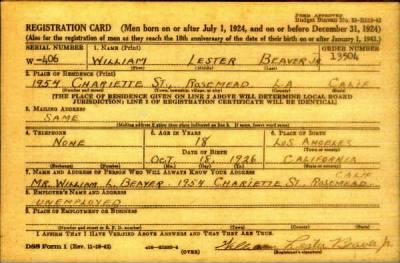 FORM APPROVED
REGISTRATION CARD (Men born on or after July 1, 1924, and on or before December 31, 1924)
(Also for the registration of men as they reach the 18th anniversary of the date of their birth on or after January 1, 1943.)
SERIAL NUMBER 1. NAME (Print) ORDER NUMBER
W-406 WILLIAM LESTER BEAVER JR. 13504
(First) (Middle) (Last)
2. PLACE OF RESIDENCE (Print)
1954 CHARIETTE ST. ROSEMEAD L.A. CALIF
(Number and street) (Town, township, village, or city) (County) (State)
[THE PLACE OF RESIDENCE GIVEN ON LINE 2 ABOVE WILL DETERMINE LOCAL BOARD
JURISDICTION; LINE 2 OF REGISTRATION CERTIFICATE WILL BE IDENTICAL]
3. MAILING ADDRESS
SAME
(Mailing address if other than place indicated on line 2. If same, insert word same)
4. TELEPHONE 5. AGE IN YEARS 6. PLACE OF BIRTH
NONE 18 LOS ANGELES
DATE OF BIRTH (Town or county)
OCT. 18, 1926 CALIFORNIA
(Exchange) (Number) (Mo.) (Day) (Yr.) (State or country)
7. NAME AND ADDRESS OF PERSON WHO WILL ALWAYS KNOW YOUR ADDRESS CALIF
MR. WILLIAM L. BEAVER 1954 CHARIETTE ST. ROSEMEAD.
8. EMPLOYER'S NAME AND ADDRESS
UNEMPLOYED
9. PLACE OF EMPLOYMENT OR BUSINESS
(Number and street or R. F. D. number) (Town) (County) (State)
I AFFIRM THAT I HAVE VERIFIED ABOVE ANSWERS AND THAT THEY ARE TRUE.
DSS Form 1 (Rev. 11-16-42) (OVER) William Lester Beaver Jr.